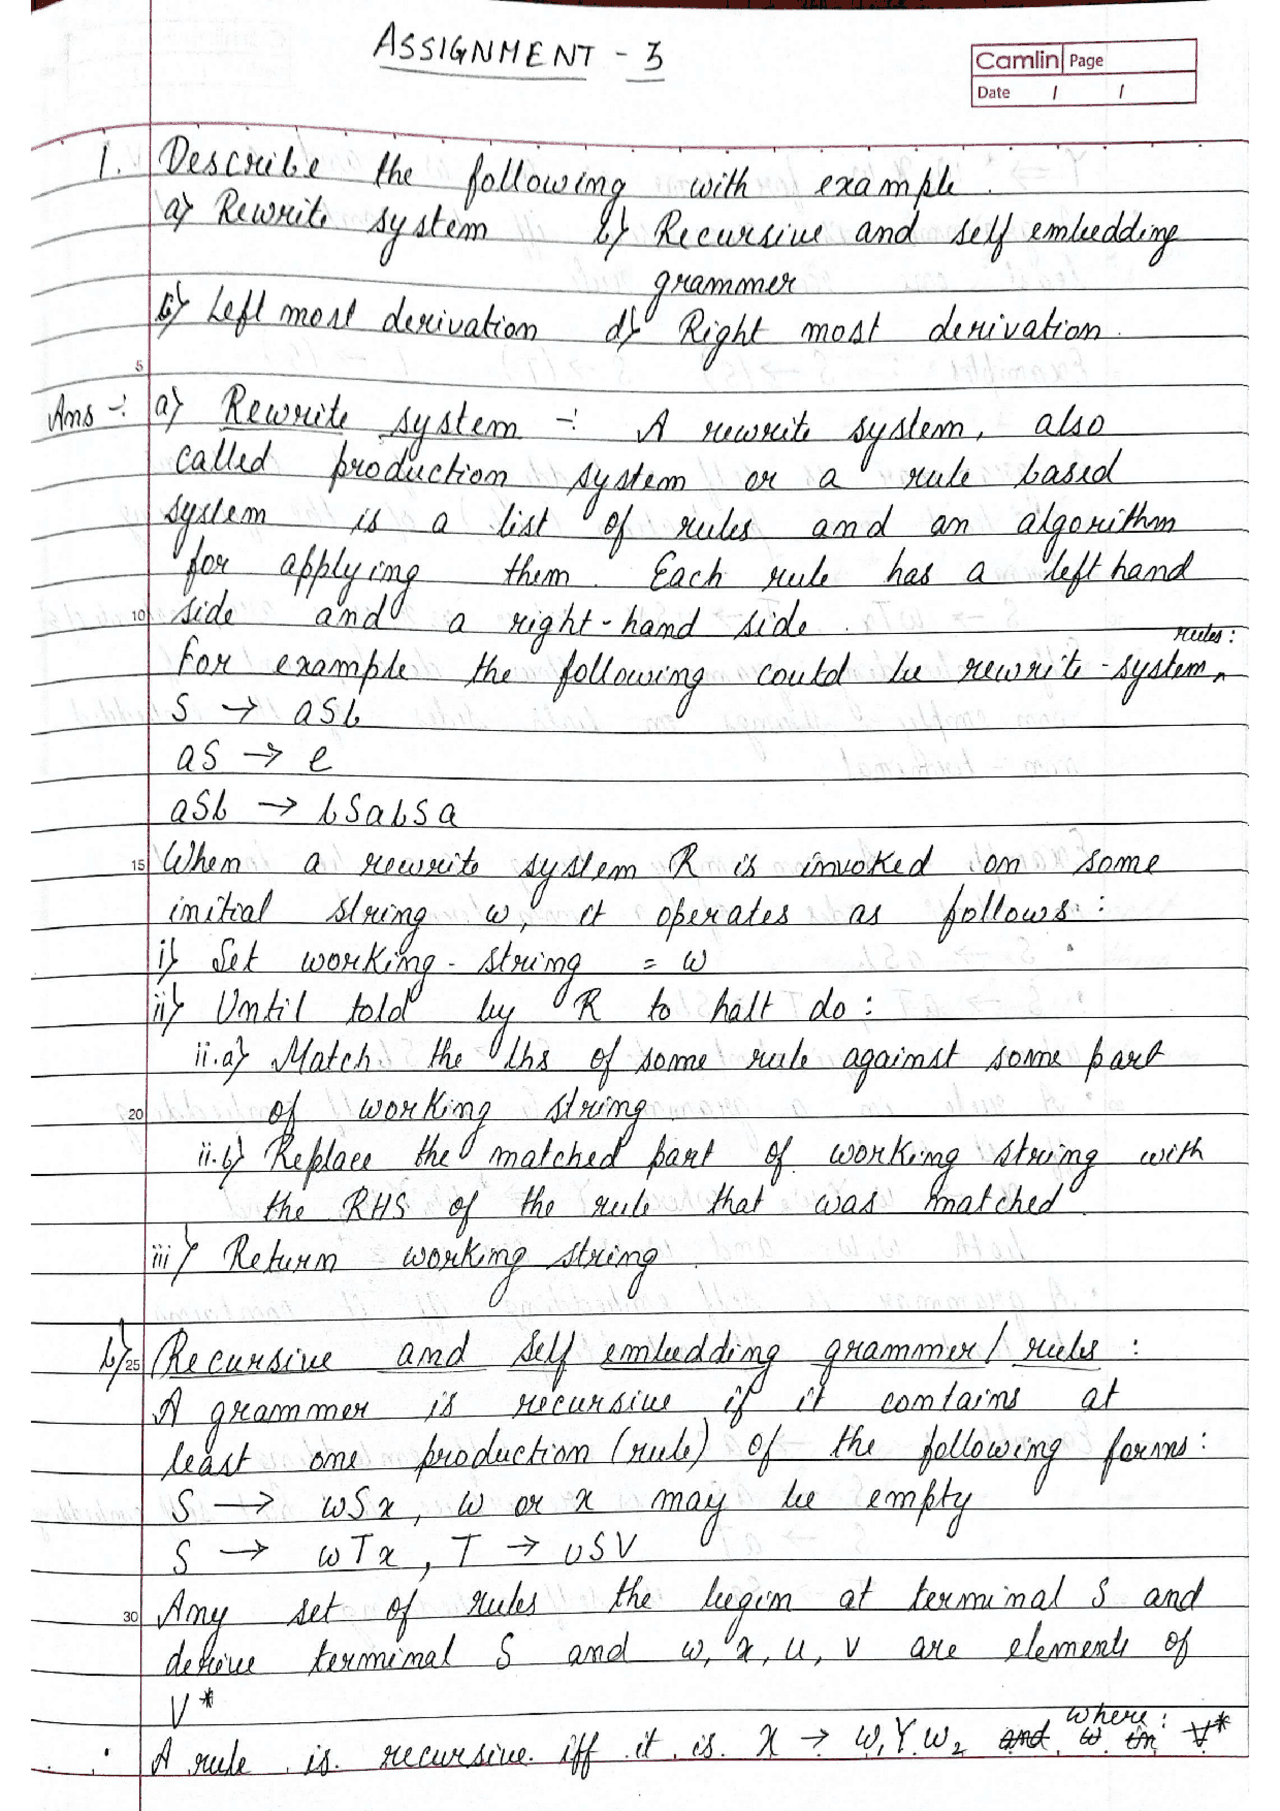 ASSIGNMENT - 3
Camlin Page
Date / /
1. Describe the following with example.
a) Rewrite system b) Recursive and self embedding
grammer
c) Left most derivation d) Right most derivation.
5
Ans :- a) Rewrite system :- A rewrite system, also
called production system or a rule based
system is a list of rules and an algorithm
for applying them. Each rule has a left hand
10 side and a right-hand side.
rules:
For example the following could be rewrite-system
S → aSb
aS → e
aSb → bSabSa
15 When a rewrite system R is invoked on some
initial string w, it operates as follows:
i) Set working-string = w
ii) Until told by R to halt do:
ii.a) Match the lhs of some rule against some part
20 of working string
ii.b) Replace the matched part of working string with
the RHS of the rule that was matched
iii) Return working string.
b) 25 Recursive and self embedding grammer/rules :
A grammer is recursive if it contains at
least one production (rule) of the following forms:
S → wSx, w or x may be empty
S → wTx, T → USV
30 Any set of rules the begin at terminal S and
derive terminal S and w, x, u, v are elements of
V*
where:
• A rule is recursive iff it is X → w₁Yw₂ and w in V*